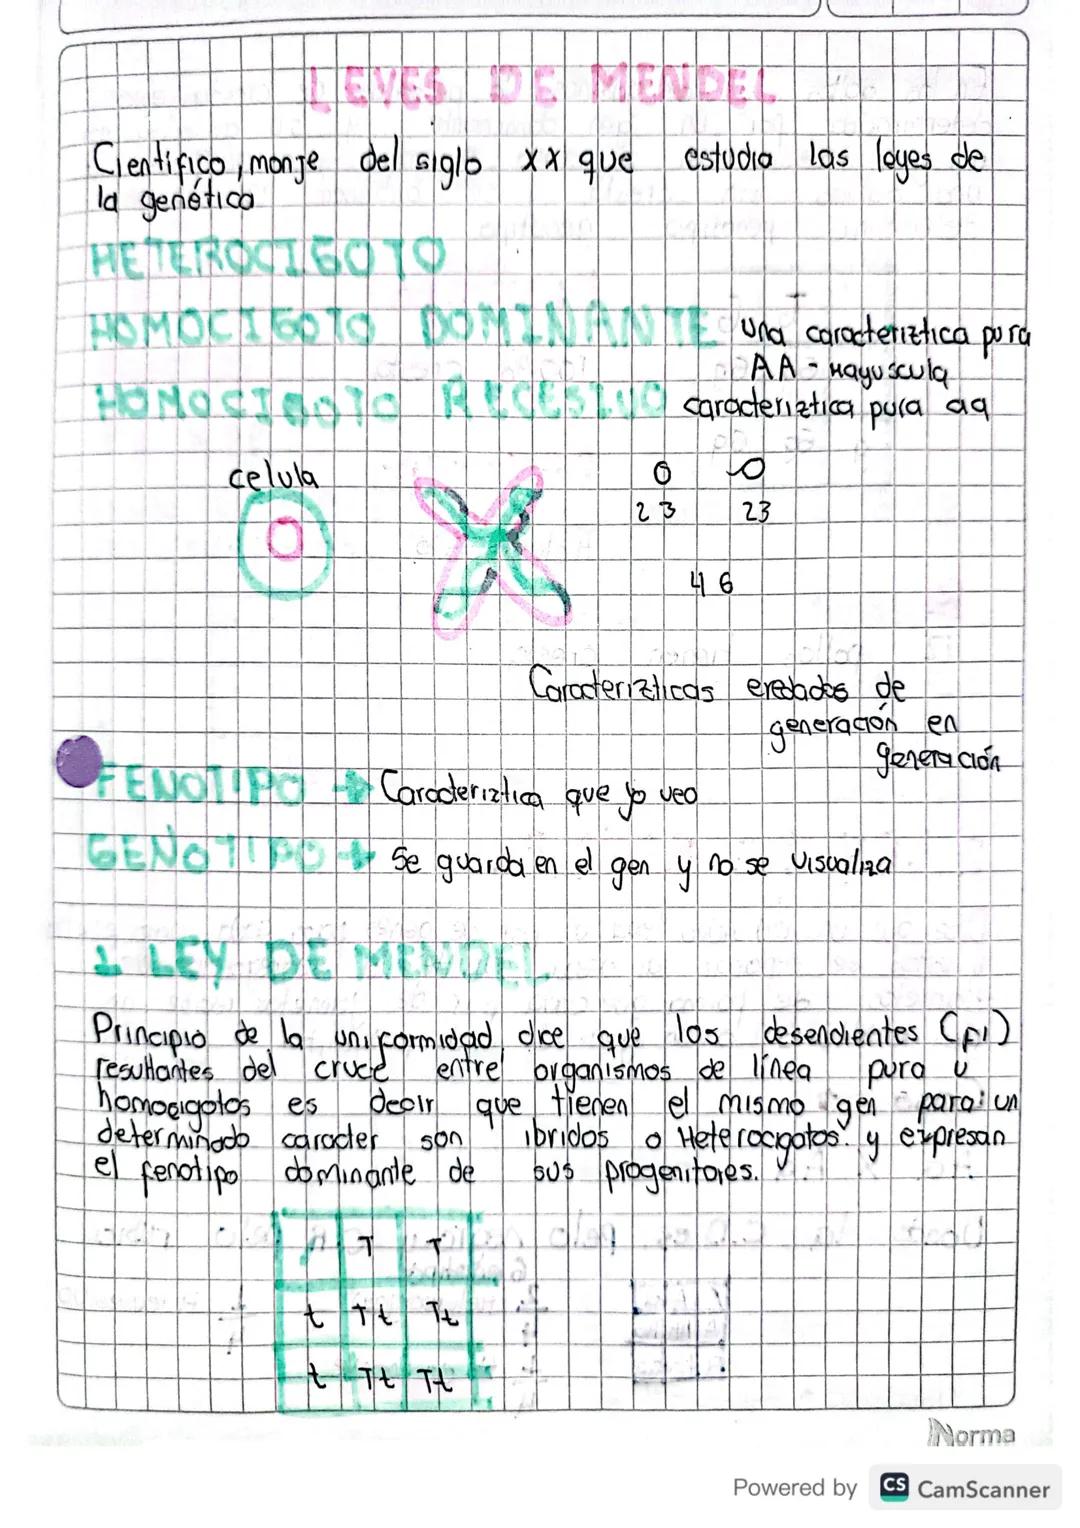 LEYES DE MENDEL
Cientifico, monje del siglo xx que estudia las leyes de
la genética
HETEROCIGOTO
HOMOCIGOTO DOMINANTE una caracteriztica pura
AA - Mayuscula
HOMOCIGOTO RECESIVO caracteriztica pura aa
celula
23 23
46
Caracterizticas eredados de
generación en
generación
FENOTIPO → Caracteriztica que yo veo
GENOTIPO → Se guarda en el gen y no se visualiza
1 LEY DE MENDEL
Principio de la uniformidad dice que los desendientes (F1)
resultantes del cruce entre organismos de línea pura u
homocigotos es decir que tienen el mismo gen para un
determinado caracter son ibridos o Heterocigotos. y expresan
el fenotipo dominante de sus progenitores.
T T
t Tt Tt
t Tt Tt
Norma
Powered by CS CamScanner